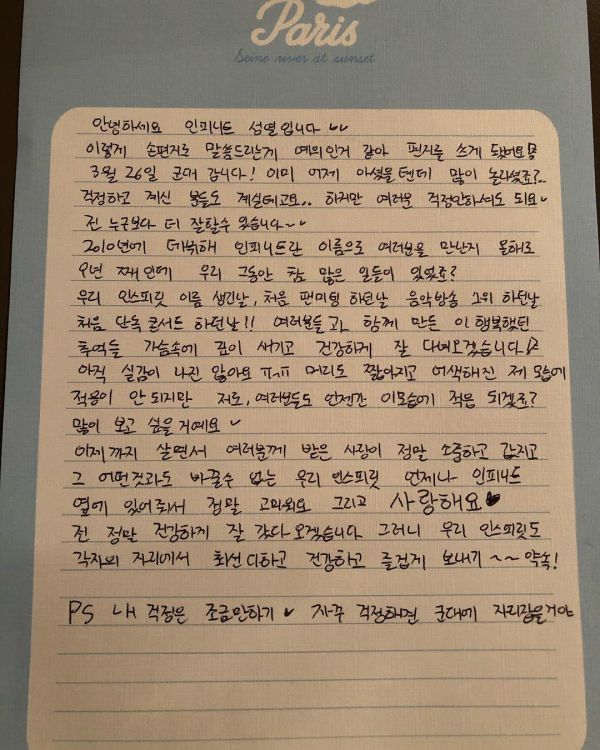 Paris
Seine rives at sunset
안녕하세요 인피니트 성열입니다 ♥♥
이렇게 손편지로 말씀드리는게 예의인거 같아 편지를 쓰게 됐어요
3월 26일 군대 갑니다! 이미 어제 아셨을텐데 많이 놀라셨죠?..
걱정하고 계신 분들도 계실테고요.. 하지만 여러분 걱정안하셔도 되요♥
전 누구보다 더 잘할수 있습니다~♥
2010년에 데뷔해 인피니트란 이름으로 여러분을 만난지 올해로
9년 째인데 우리 그동안 참 많은 일들이 있었죠?
우리 인스피릿 이름 생긴날, 처음 팬미팅 하던날 음악방송 1위 하던날
처음 단독콘서트 하던날!! 여러분들과 함께 만든 이 행복했던
추억들 가슴속에 깊이 새기고 건강하게 잘 다녀오겠습니다
아직 실감이 나진 않아요 ㅠㅠ 머리도 짧아지고 어색해진 제 모습에
적응이 안되지만 저도, 여러분들도 언젠간 이모습에 적응 되겠죠?
많이 보고 싶을거예요 ♥
이제까지 살면서 여러분께 받은 사랑이 정말 소중하고 값지고
그 어떤것과도 바꿀수 없는 우리 인스피릿 언제나 인피니트
옆에 있어줘서 정말 고마워요 그리고 사랑해요♥
전 정말 건강하게 잘 갔다오겠습니다 그러니 우리 인스피릿도
각자의 자리에서 최선 다하고 건강하고 즐겁게 보내기 ~~ 약속!
PS 내 걱정은 조금만하기 ♥ 자꾸 걱정하면 군대에 자리잡을거야